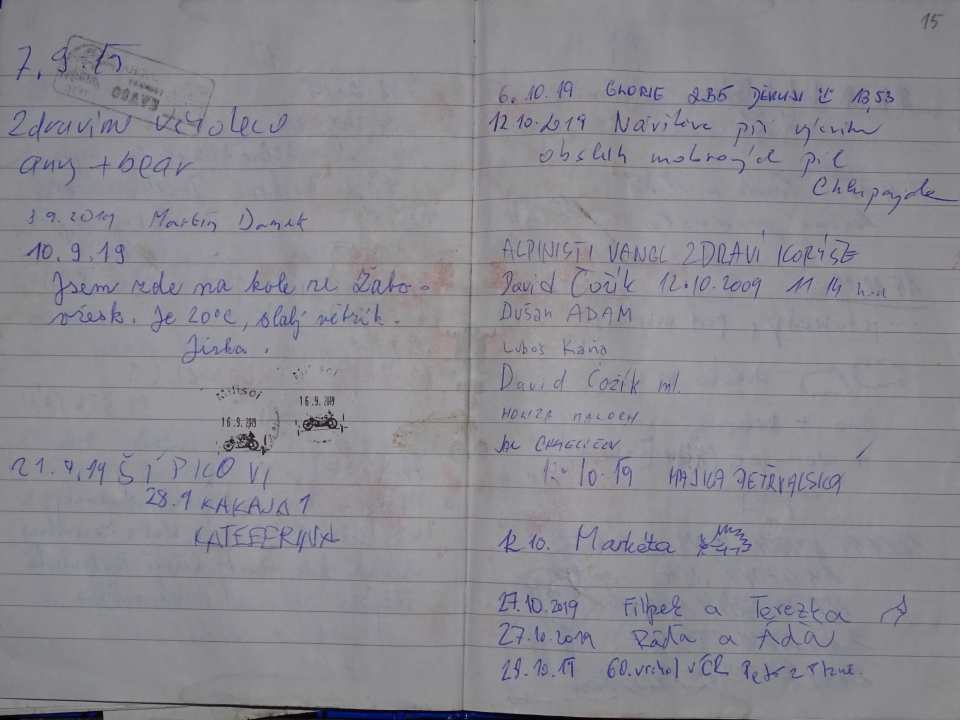 7.9.15
Zdravím
any + bear
3.9.2019 Martin Danek
10.9.19
Jsem zde na kole ze Žabo-
vřesk. Je 20°C, slabý větřík.
Jirka.
Milisoi
16.9.2019
Milisoi
16.9.2019
21.9.19 ŠÍPKOVI
28.9 KAKAJA 1
KATEŘERINA
15
6.10.19 GLORIE 235 DĚKUJI 13,53
12.10.2019 Návštěva při výcviku
obsluh motorových pil
ALPINISTI VANGL ZDRAVÍ
David Čožík 12.10.2009 11 14 hod
Dušan ADAM
Luboš Kaňa
David Čožík ml.
HONZA MALOCH
12.10.19 HAJKA PETŘVALSKÁ
12.10. Markéta
27.10.2019 Filípek a Terezka
27.10.2019 Ráďa a Áďa
28.10.19 60. vrchol v ČR Petr z Plzně.